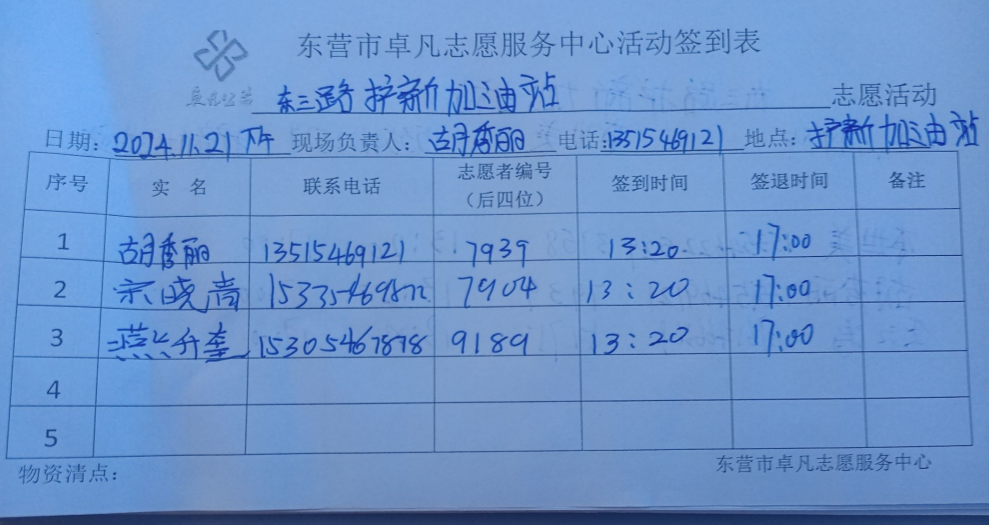 东营市卓凡志愿服务中心活动签到表
东三路护新加油站 志愿活动
日期：2024.11.21下午 现场负责人：胡香丽 电话：13515469121 地点：护新加油站
序号 实 名 联系电话 志愿者编号（后四位） 签到时间 签退时间 备注
1 胡香丽 13515469121 7939 13:20 17:00
2 宗晓 7904 13:20 17:00
3 15305467878 9189 13:20 17:00
4
5
物资清点： 东营市卓凡志愿服务中心